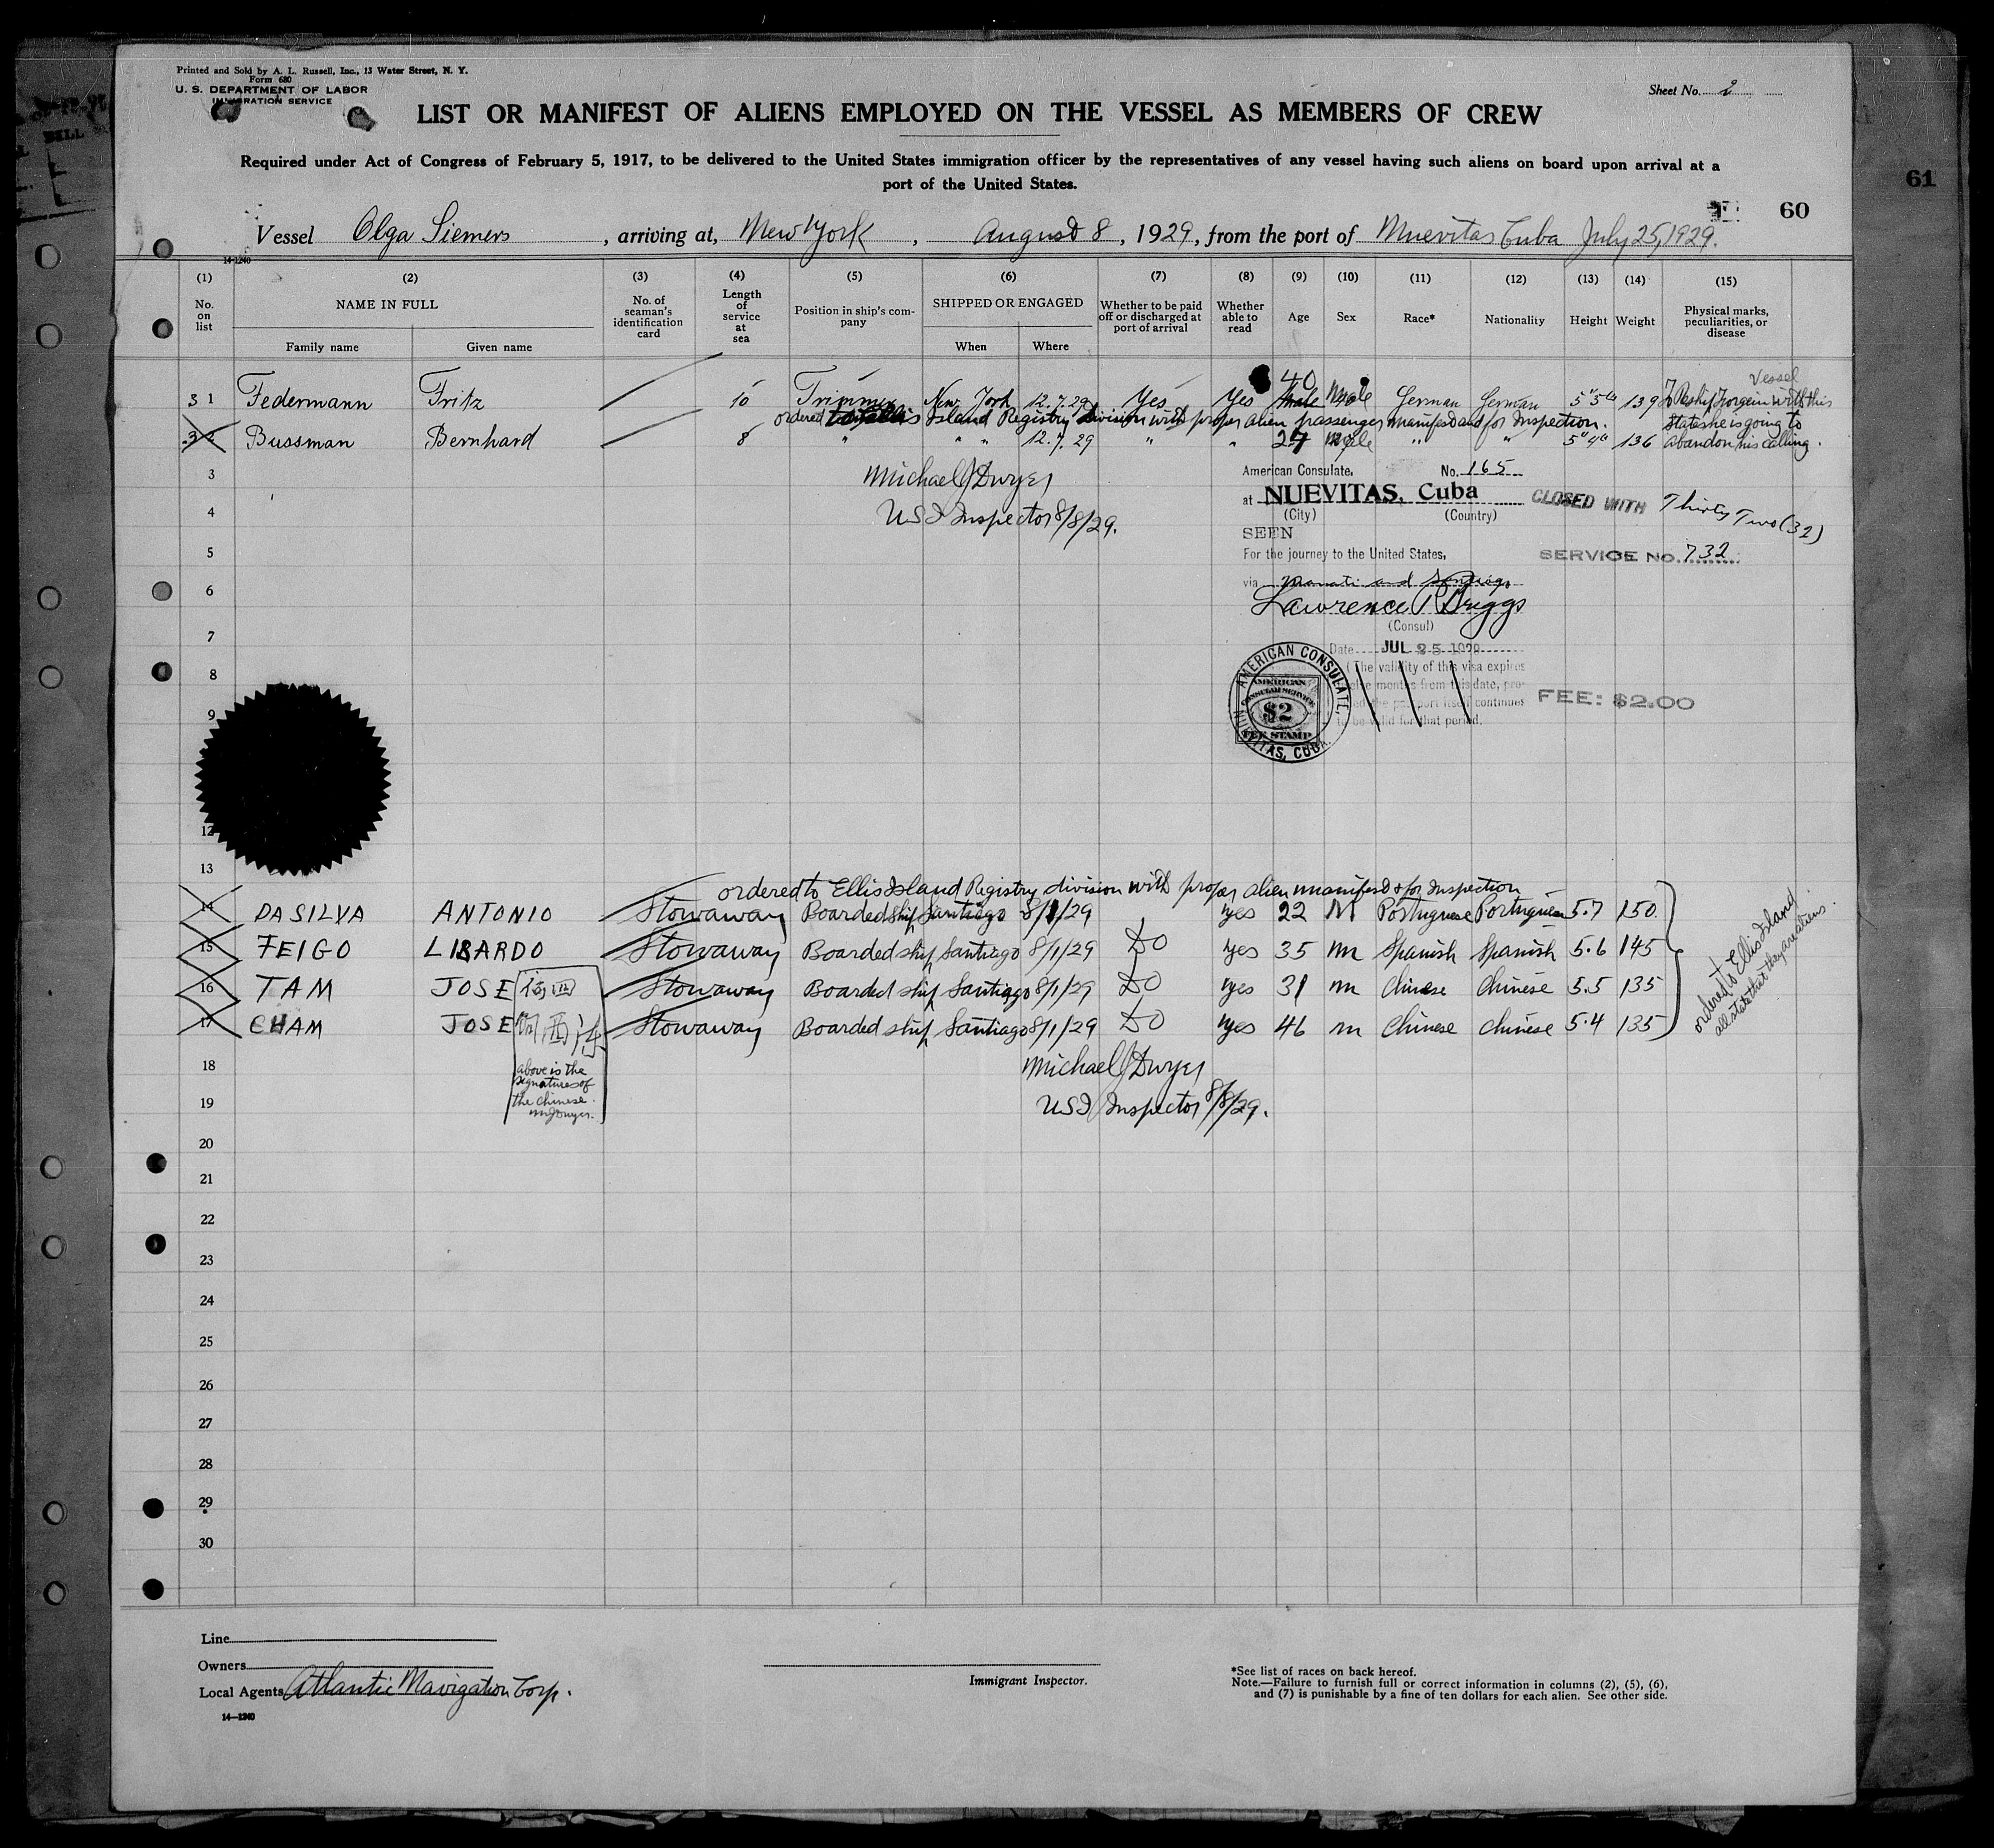 Printed and Sold by A. L. Russell, Inc., 13 Water Street, N. Y.
Form 680
U. S. DEPARTMENT OF LABOR
IMMIGRATION SERVICE
Sheet No. 2
LIST OR MANIFEST OF ALIENS EMPLOYED ON THE VESSEL AS MEMBERS OF CREW
Required under Act of Congress of February 5, 1917, to be delivered to the United States immigration officer by the representatives of any vessel having such aliens on board upon arrival at a
port of the United States.
61
60
Vessel Olga Siemers, arriving at, New York, August 8, 1929, from the port of Nuevitas Cuba July 25, 1929.
14-1240
(1) No. on list
(2) NAME IN FULL Family name Given name
(3) No. of seaman's identification card
(4) Length of service at sea
(5) Position in ship's company
(6) SHIPPED OR ENGAGED When Where
(7) Whether to be paid off or discharged at port of arrival
(8) Whether able to read
(9) Age
(10) Sex
(11) Race*
(12) Nationality
(13) Height
(14) Weight
(15) Physical marks, peculiarities, or disease
3 1 Federmann Fritz 10 Trimmer New York 12.7.29 Yes Yes 40 Male German German 5" 5" 139 To Reship Foreign with this Vessel
ordered to Ellis Island Registry Division with proper alien passenger manifest and for Inspection.
3 2 Bussman Bernhard 8 " " " 12.7.29 " " 24 Male " " 5" 4" 136 States he is going to abandon his calling.
3
4
5
6
7
8
9
12
13
Michael J Dwyer
US I Inspector 8/8/29.
American Consulate, No. 165
at NUEVITAS, Cuba
(City) (Country)
SEEN
For the journey to the United States,
via Manati and Santiago
Lawrence P Briggs
(Consul)
Date JUL 25 1929
(The validity of this visa expires
months from this date, pro-
the passport itself continues
to be valid for that period.
CLOSED WITH Thirty Two (32)
SERVICE NO. 732
FEE: $2.00
AMERICAN CONSULATE, NUEVITAS, CUBA.
AMERICAN CONSULAR SERVICE $2 FEE STAMP
ordered to Ellis Island Registry division with proper alien manifest & for Inspection
14 DA SILVA ANTONIO Stowaway Boarded ship Santiago 8/1/29 yes 22 M Portuguese Portuguese 5.7 150.
15 FEIGO LIBARDO Stowaway Boarded ship Santiago 8/1/29 DO yes 35 m Spanish Spanish 5.6 145
16 TAM JOSE Stowaway Boarded ship Santiago 8/1/29 DO yes 31 m Chinese Chinese 5.5 135
17 CHAM JOSE Stowaway Boarded ship Santiago 8/1/29 DO yes 46 m Chinese Chinese 5.4 135
ordered to Ellis Island.
all state that they are aliens.
above is the
signatures of
the Chinese.
MJ Dwyer.
Michael J Dwyer
US I Inspector 8/8/29.
18
19
20
21
22
23
24
25
26
27
28
29
30
Line
Owners
Local Agents Atlantic Navigation Corp.
14—1240
Immigrant Inspector.
*See list of races on back hereof.
Note.—Failure to furnish full or correct information in columns (2), (5), (6),
and (7) is punishable by a fine of ten dollars for each alien. See other side.